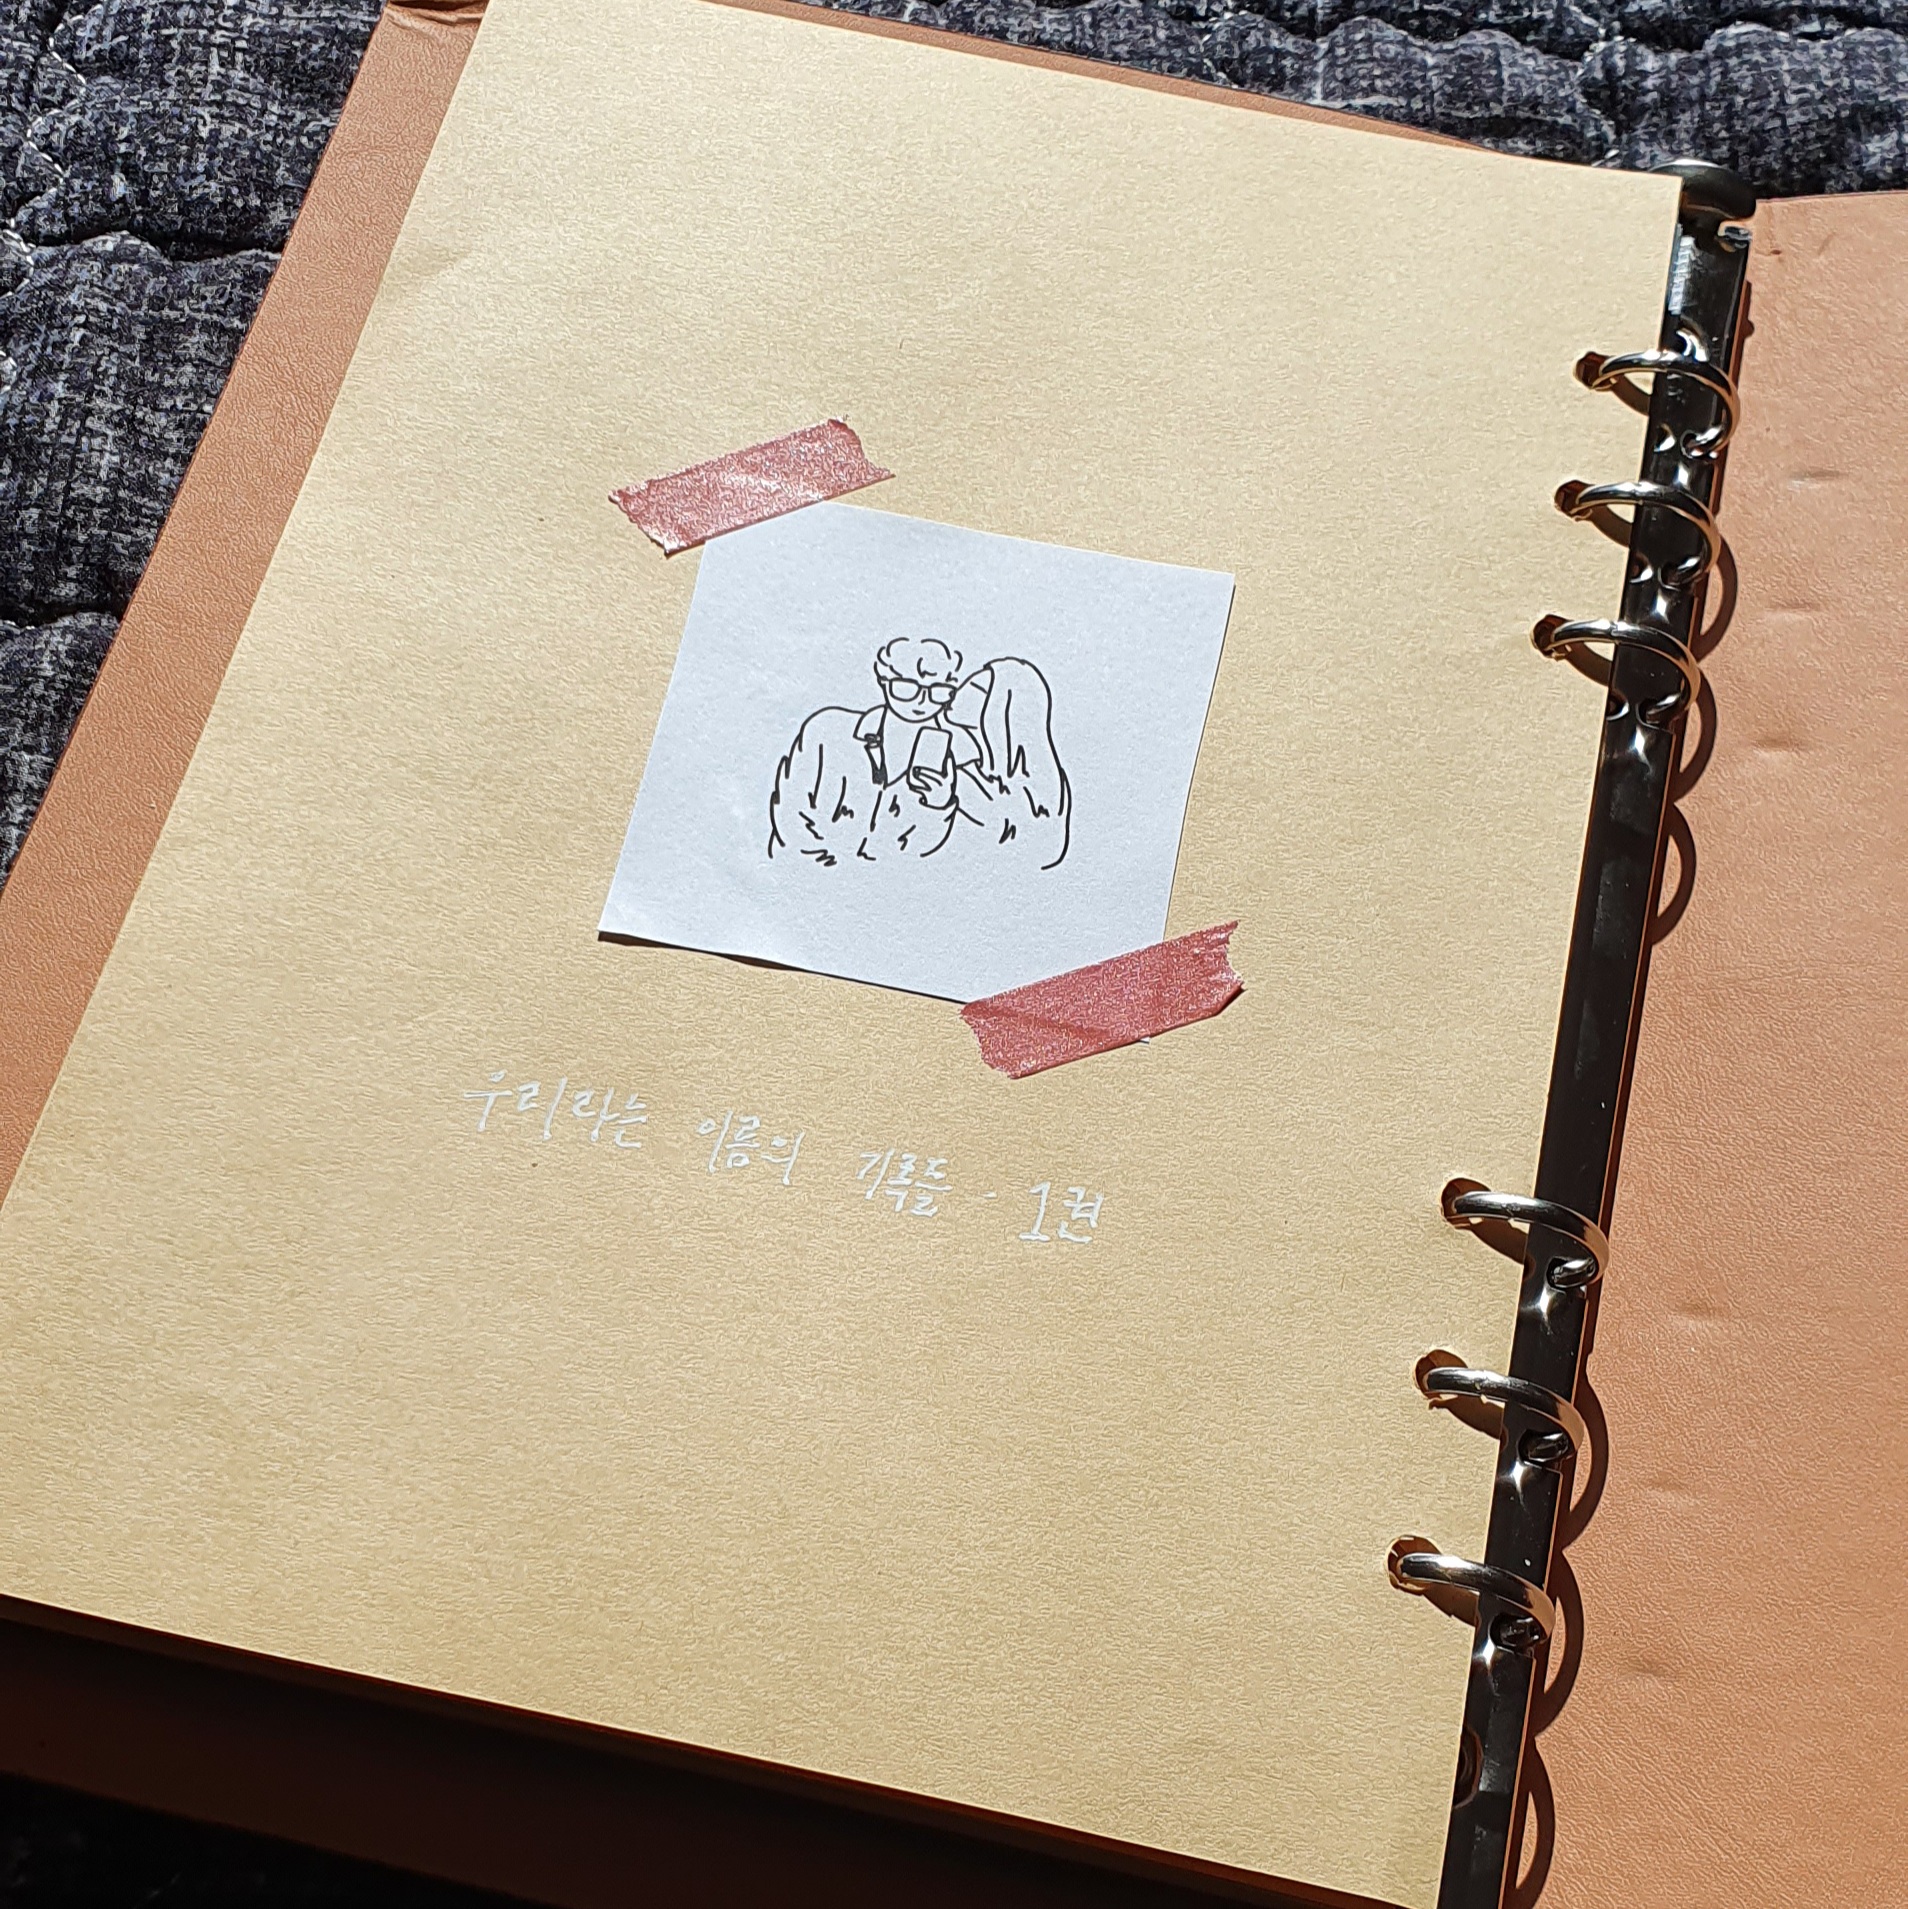 우리라는 이름의 기록들 - 1권